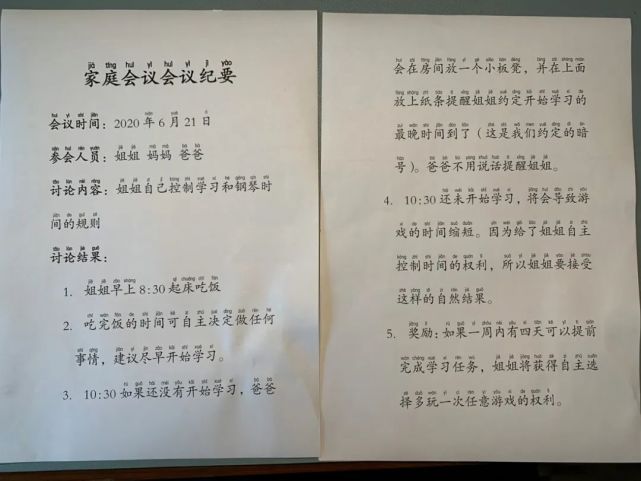 家庭会议会议纪要
会议时间：2020 年 6 月 21 日
参会人员：姐姐 妈妈 爸爸
讨论内容：姐姐自己控制学习和钢琴时
间的规则
讨论结果：
1. 姐姐早上 8:30 起床吃饭
2. 吃完饭的时间可自主决定做任何
事情，建议尽早开始学习。
3. 10:30 如果还没有开始学习，爸爸
会在房间放一个小板凳，并在上面
放上纸条提醒姐姐约定开始学习的
最晚时间到了（这是我们约定的暗
号）。爸爸不用说话提醒姐姐。
4. 10:30 还未开始学习，将会导致游
戏的时间缩短。因为给了姐姐自主
控制时间的权利，所以姐姐要接受
这样的自然结果。
5. 奖励：如果一周内有四天可以提前
完成学习任务，姐姐将获得自主选
择多玩一次任意游戏的权利。